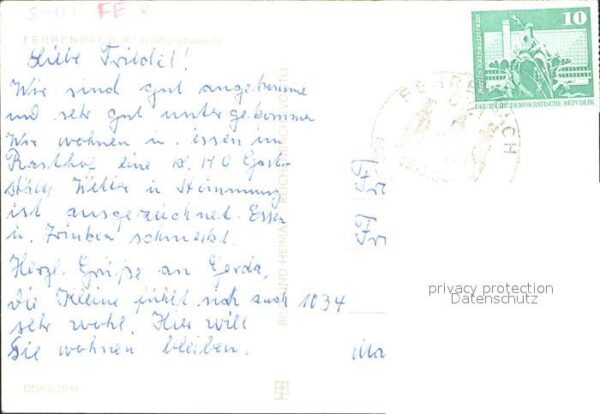 S-111 FE 8
FEHRENBACH (Kr. Hildburghausen)
Liebe Friedel!
Wir sind gut angekommen
und sehr gut untergekommen
Wir wohnen u. essen im
eine
stätte Wetter u Stimmung
ist ausgezeichnet. Essen
u. Trinken schmeckt.
Herzl. Grüße an Gerda,
die Kleine fühlt sich auch
sehr wohl. Hier will
Sie wohnen bleiben.
DDR 0,20 M
BILD UND HEIMAT REICHENBACH (VOGTL)
10
Berlin Rathausstraße
DEUTSCHE DEMOKRATISCHE REPUBLIK
FEHRENBACH
Fr
Fr
1034
privacy protection
Datenschutz